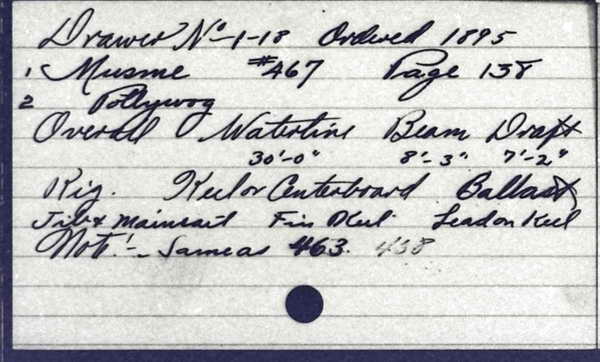 Drawer No 1-18 Ordered 1895
1 Musme #467 Page 138
2 Pollywog
Overall Waterline Beam Draft
30'-0" 8'-3" 7'-2"
Rig. Keel or Centerboard Ballast
Jib & Mainsail Fin Keel Lead on Keel
Note:- Same as 463. 438